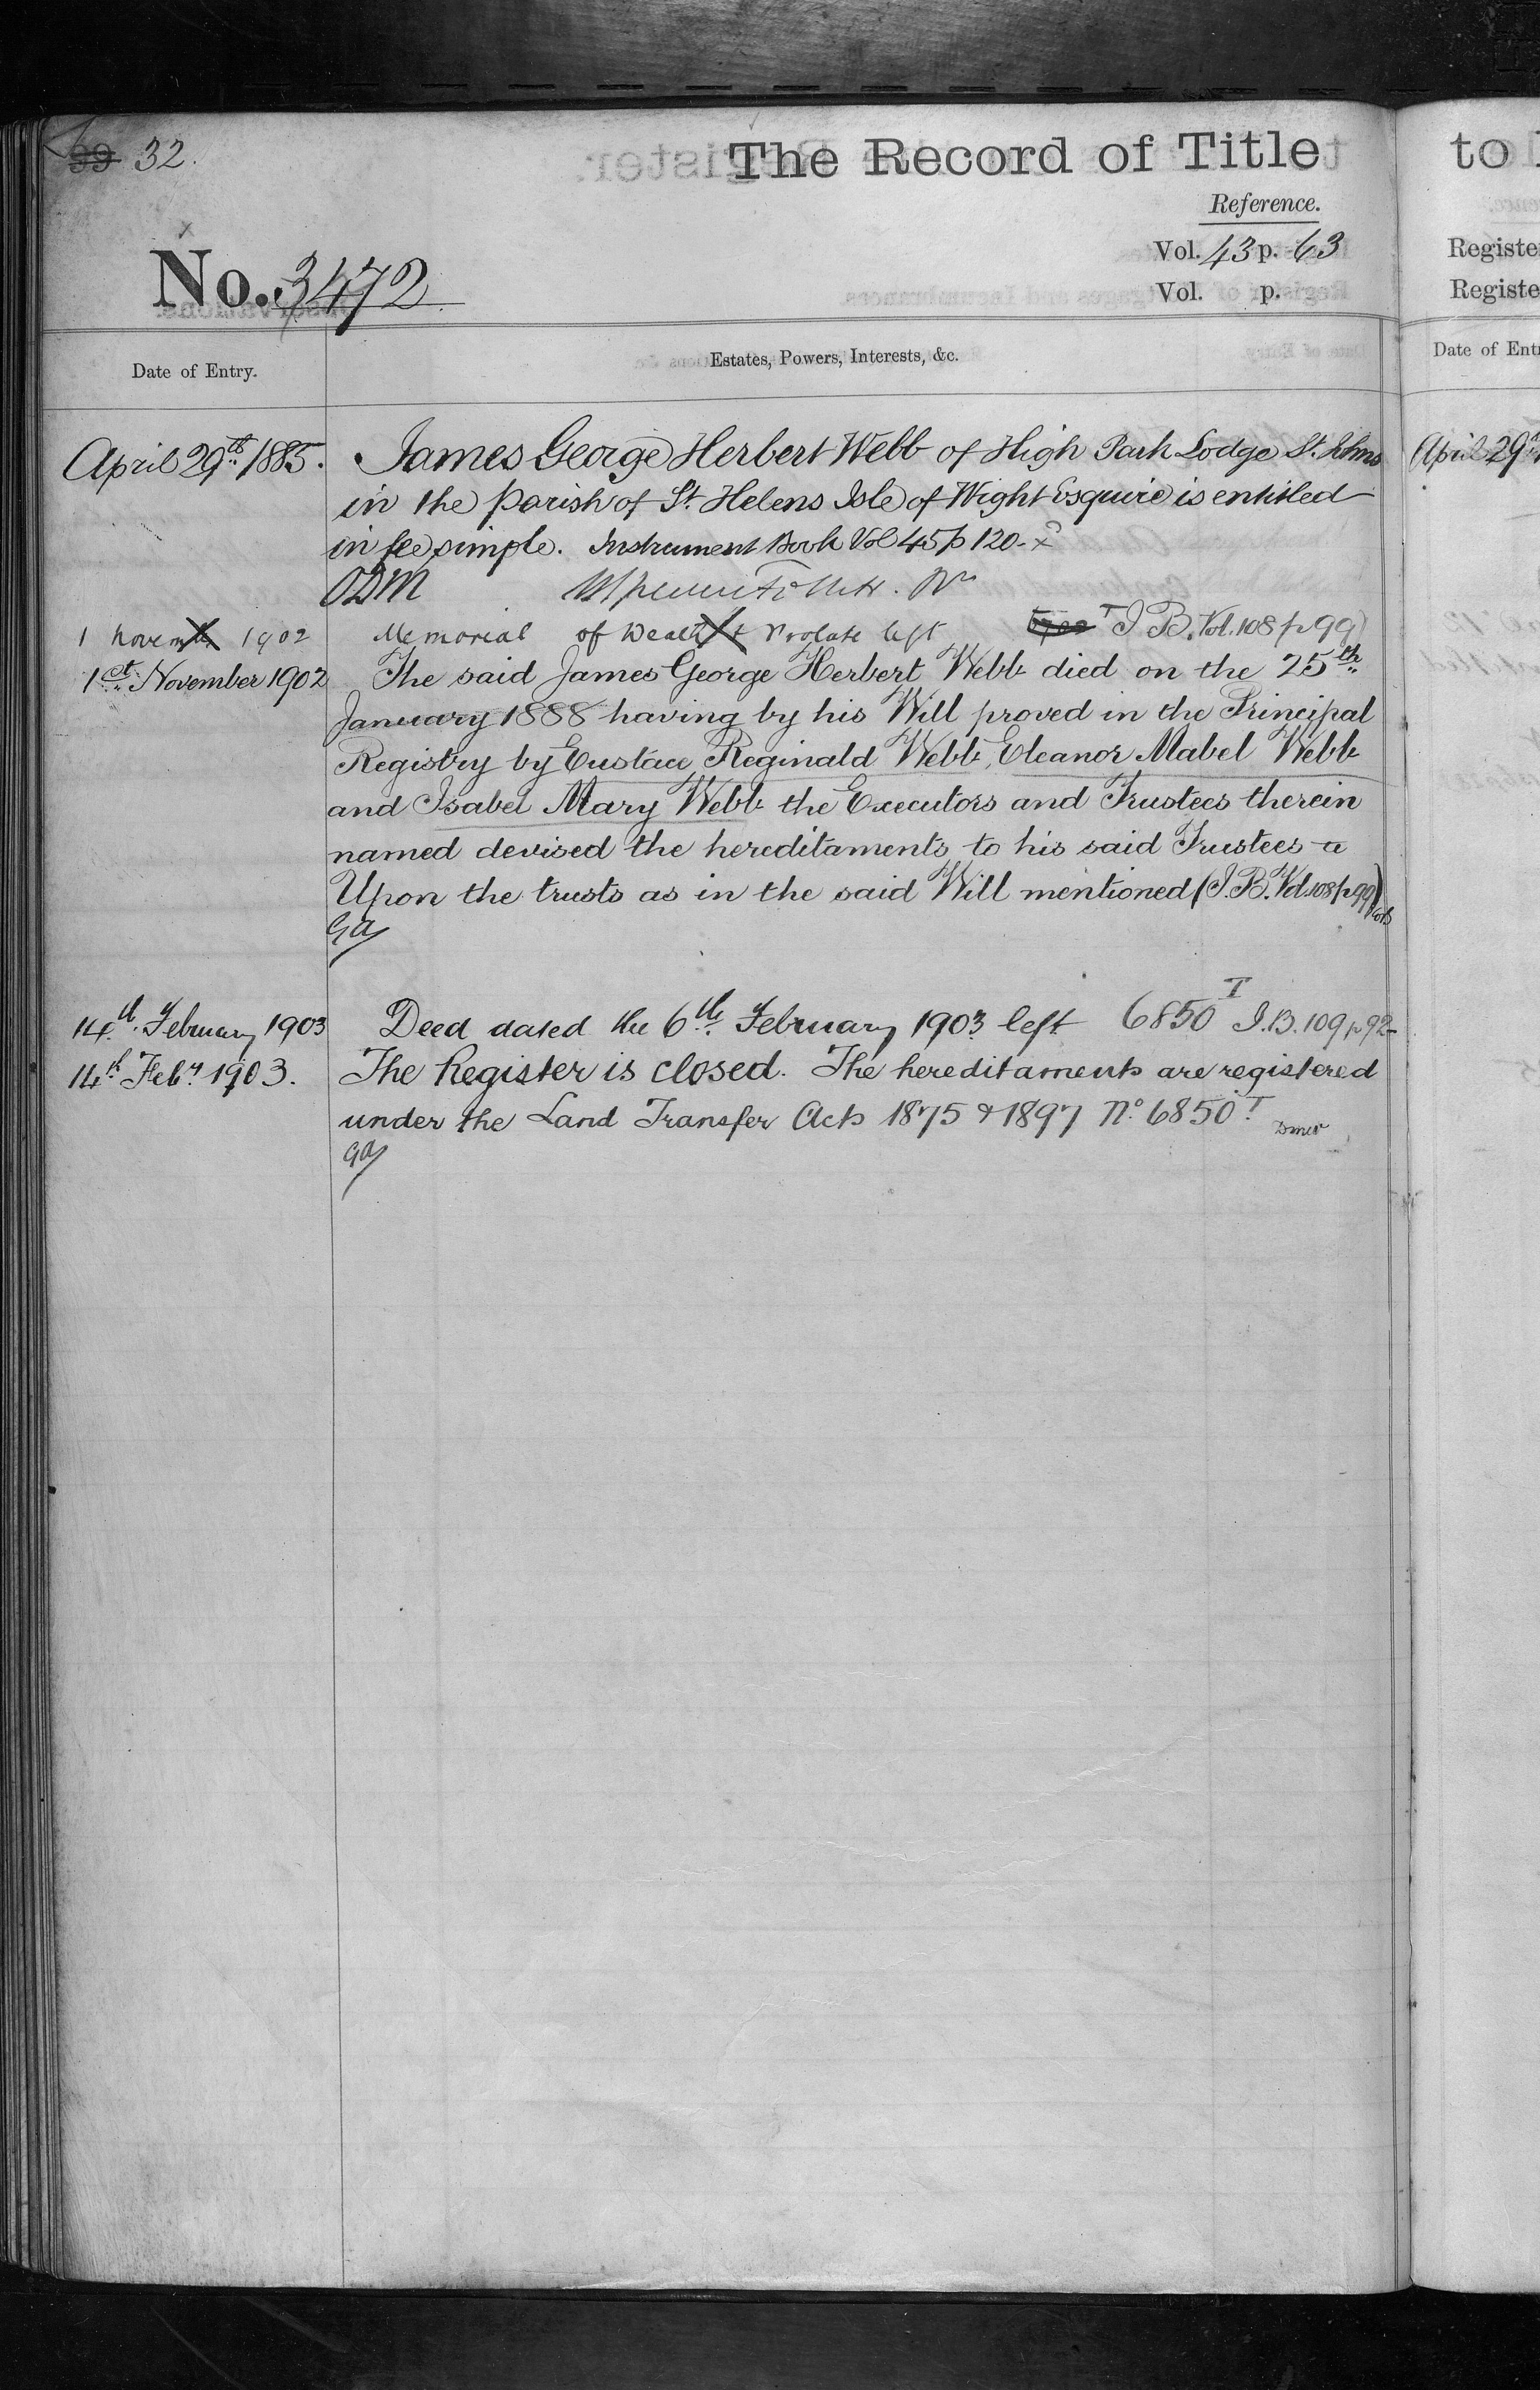 99 32.
The Record of Title
Reference.
Vol. 43 p. 63
Vol. p.
No. 3472
Date of Entry.
Estates, Powers, Interests, &c.
April 29th 1885. James George Herbert Webb of High Park Lodge St. Johns
in the Parish of St. Helens Isle of Wight Esquire is entitled
in fee simple. Instrument Book Vol 45 p 120-
ODM
1 November 1902 Memorial of Death & Probate left I.B. Vol. 108 p 99)
1st November 1902 The said James George Herbert Webb died on the 25th
January 1888 having by his Will proved in the Principal
Registry by Eustace Reginald Webb, Eleanor Mabel Webb
and Isabel Mary Webb the Executors and Trustees therein
named devised the hereditaments to his said Trustees
Upon the trusts as in the said Will mentioned (I.B. Vol. 108 p 99)
14th February 1903 Deed dated the 6th February 1903 left 6850 T I.B. 109 p 92-
14th Feby 1903. The Register is closed. The hereditaments are registered
under the Land Transfer Acts 1875 & 1897 No. 6850 T
to
Registe
Registe
Date of Ent
April 29th